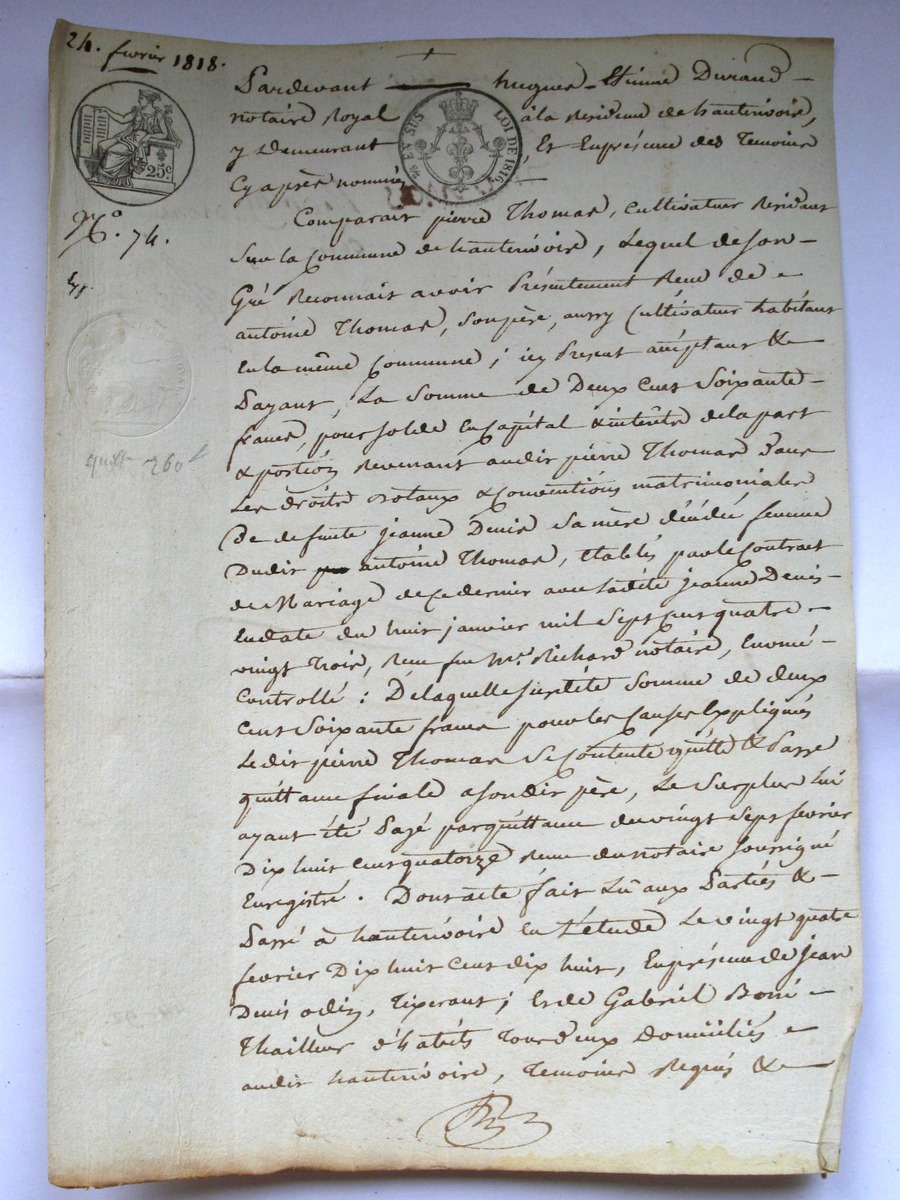 24. fevrier 1818.
Pardevant hugues Etienne Durand
notaire Royal à la Residence de hauterivoire,
25c
EN SUS LOI DE 1816
y Demeurant, Et En présence des Temoins
Cy après nommés
Comparait pierre Thomas, Cultivateur Residant
N.º 74.
Sur la Commune de hauterivoire, Lequel de son
Gré Reconnait avoir Présentement Recu de
antoine Thomas, son père, aussy Cultivateur habitant
En la même Commune ; icy Présent acceptant &
Payant, La Somme de Deux Cent Soixante
francs, pour solde en Capital & intérêts de la part
260
& portion Revenant audit pierre Thomas dans
Les droits dotaux & Conventions matrimoniales
De defunte jeanne Denis sa mère décédée femme
Dudit antoine Thomas, Etablis par le Contrat
de Mariage de ce dernier avec ladite jeanne Denis
En date du huit janvier mil Sept Cent quatre
vingt trois, Recu feu Me. Richard notaire,
Controllé : De laquelle susdite Somme de deux
Cent Soixante francs pour les Causes Expliquées
Ledit pierre Thomas Se Contente quitte & Passe
quittance finale a son dit père, Le Surplus Lui
ayant été Payé par quittance du vingt Sept fevrier
Dix huit Cent quatorze Recue du notaire soussigné
Enregistré. Dont acte fait Lû aux Parties &
Passé à hauterivoire En L'étude Le vingt quatre
fevrier Dix huit Cent dix huit, En présence de Jean
Denis odin, Tixerant ; Et de Gabriel Boni
Thailleur d'habits Tous deux Domiciliés
audit hauterivoire, Temoins Requis &